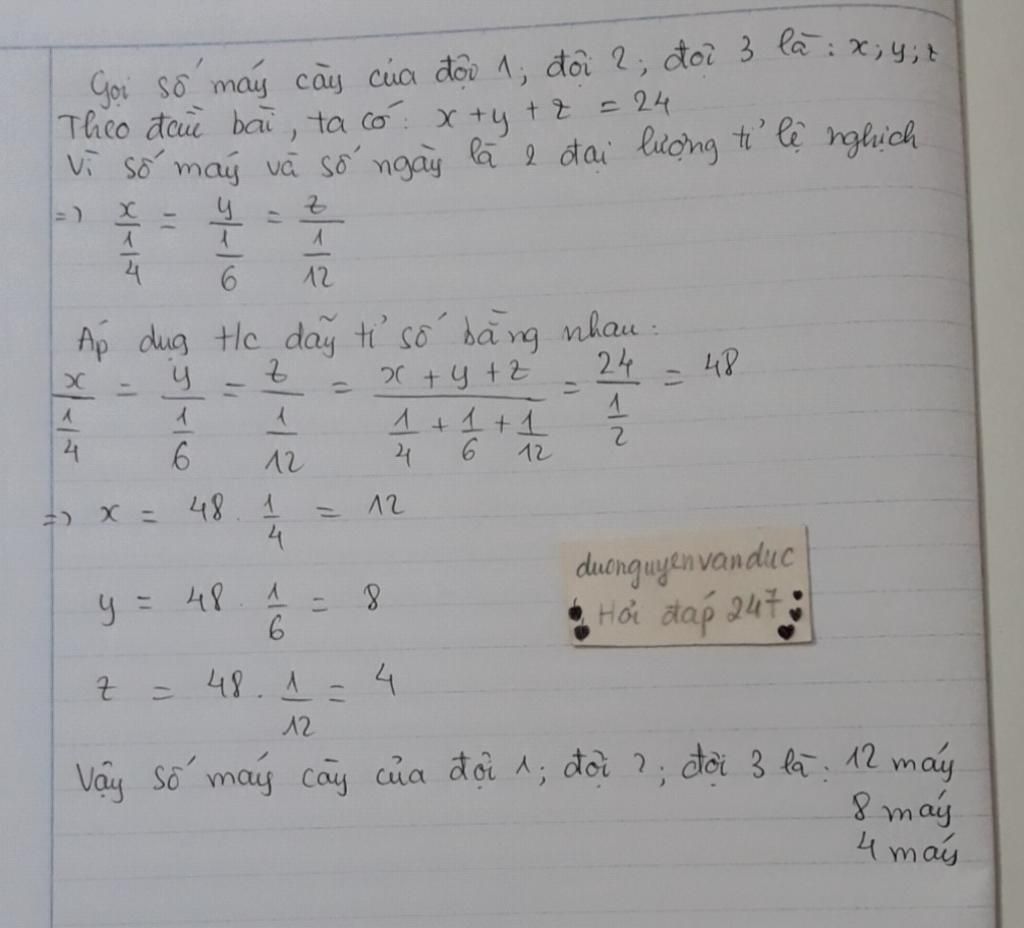 Gọi số máy cày của đội 1; đội 2; đội 3 là: x; y; z
Theo đầu bài, ta có: x + y + z = 24
Vì số máy và số ngày là 2 đại lượng tỉ lệ nghịch
=> x/(1/4) = y/(1/6) = z/(1/12)
Áp dug t/c dãy tỉ số bằng nhau:
x/(1/4) = y/(1/6) = z/(1/12) = (x + y + z)/(1/4 + 1/6 + 1/12) = 24/(1/2) = 48
=> x = 48 . 1/4 = 12
y = 48 . 1/6 = 8
z = 48 . 1/12 = 4
duonguyenvanduc
Hỏi đáp 247
Vậy số máy cày của đội 1; đội 2; đội 3 là: 12 máy
8 máy
4 máy